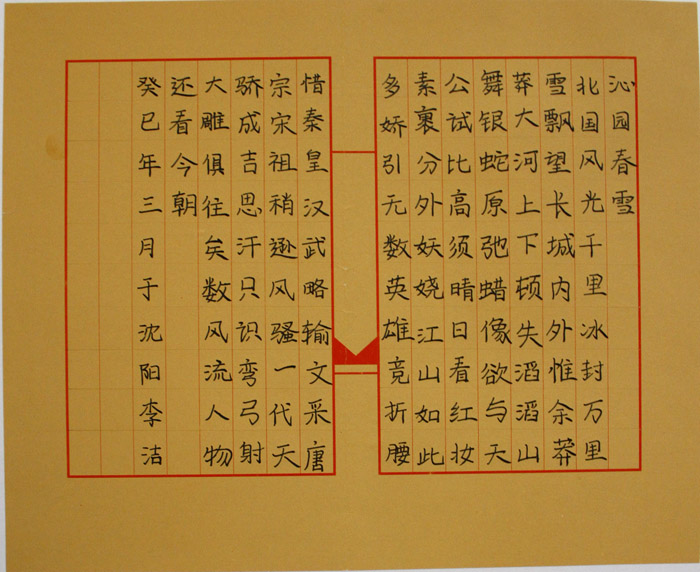 沁园春雪
北国风光千里冰封万里
雪飘望长城内外惟余莽
莽大河上下顿失滔滔山
舞银蛇原弛蜡像欲与天
公试比高须晴日看红妆
素裹分外妖娆江山如此
多娇引无数英雄竞折腰
惜秦皇汉武略输文采唐
宗宋祖稍逊风骚一代天
骄成吉思汗只识弯弓射
大雕俱往矣数风流人物
还看今朝
癸巳年三月于沈阳李洁